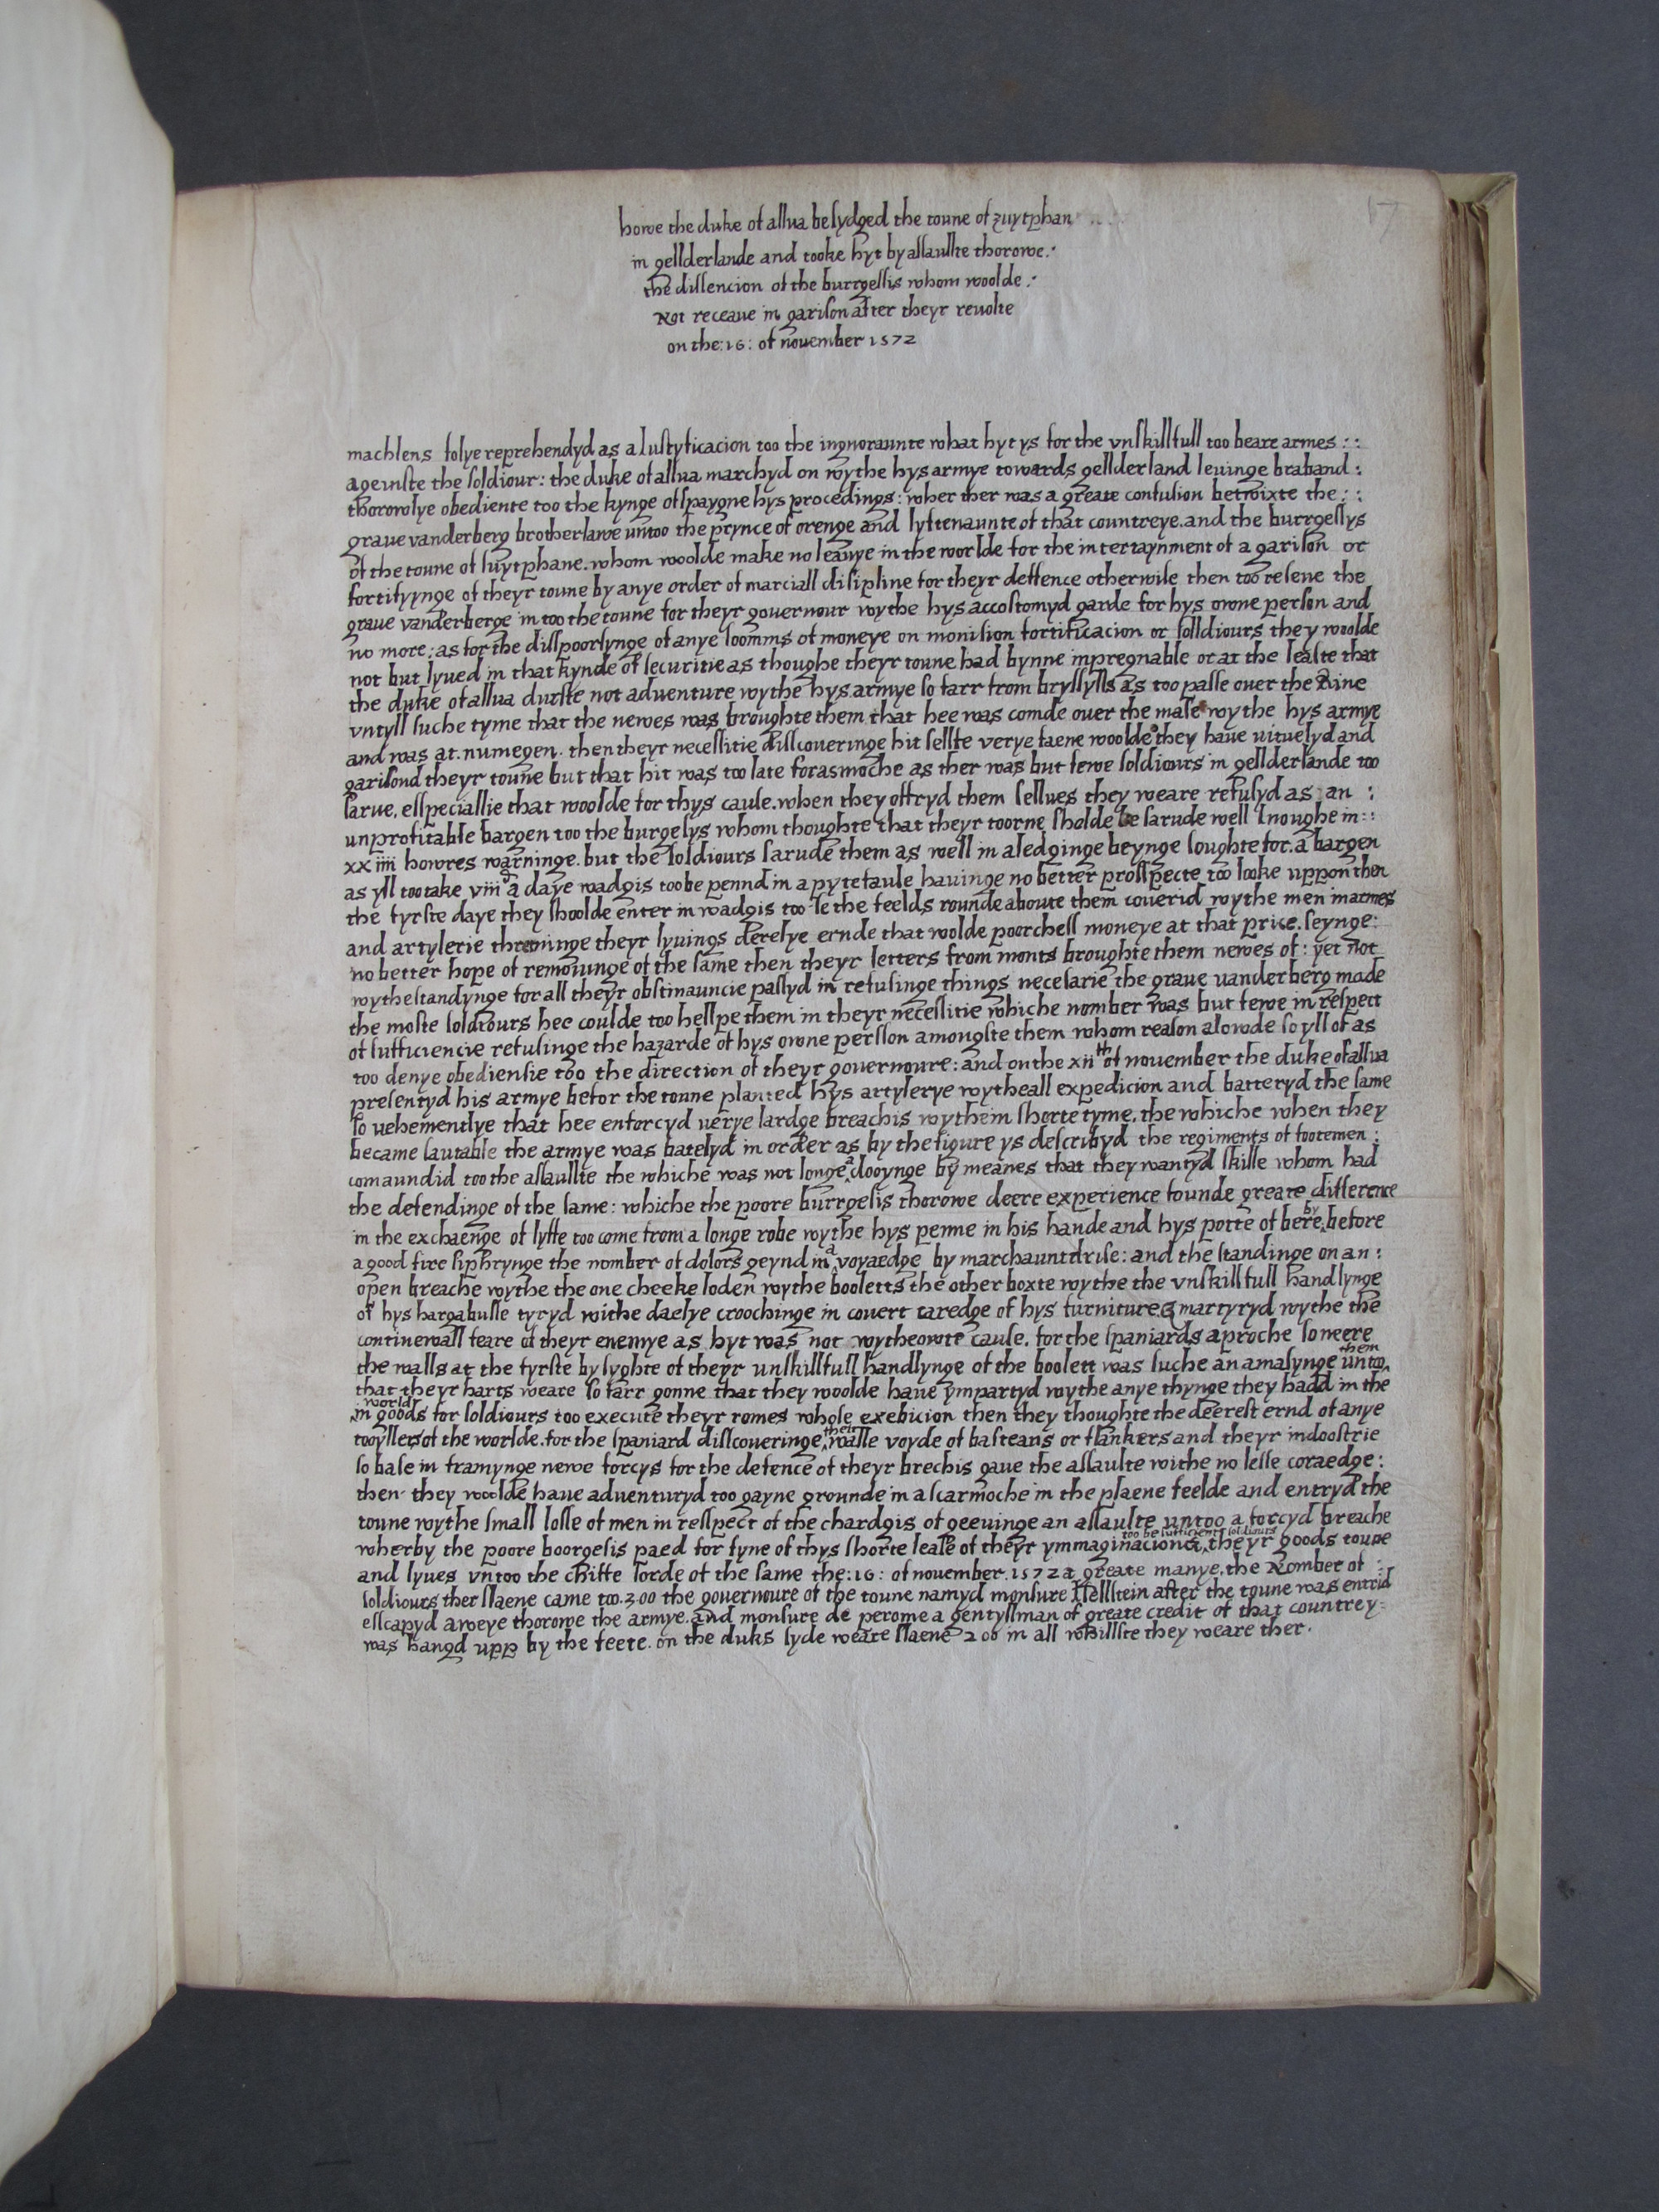 howe the duke of allua besydged the toune of zuytphan
in gellderlande and tooke hyt by assaullte thorowe :
the dissencion of the burrgessis whom woolde :
Not receaue in garison after theyr reuolte
on the : 16 : of nouember 1572
17
machlens folye reprehendyd as a Iustyficacion too the ingnoraunte what hyt ys for the vnskillfull too beare armes : :
ageinste the soldiour : the duke of allua marchyd on wythe hys armye towards gellderland leuinge braband :
thorowlye obediente too the kynge of spaygne hys procedings : wher ther was a greate confusion betwixte the : :
graue vanderberg brotherlawe untoo the prynce of orenge and lyftenaunte of that countreye. and the burrgessys
of the toune of suytphane. whom woolde make no leauye in the worlde for the intertaynment of a garison or
fortifyynge of theyr toune by anye order of marciall disipline for theyr deffence otherwise then too reseue the
graue vanderberge in too the toune for theyr gouernour wythe hys accostomyd garde for hys owne person and
no more : as for the disspoorsynge of anye soomms of moneye on monision fortificacion or solldiours they woolde
not but lyued in that kynde of securitie as thoughe theyr toune had bynne inpregnable or at the leaste that
the duke of allua durste not adventure wythe hys armye so farr from bryssylls as too passe ouer the Rine
vntyll suche tyme that the newes was broughte them that hee was comde ouer the mase wythe hys armye
and was at. numegen. then theyr necessitie disscoueringe hit sellfe verye faene woolde they haue uituelyd and
garisond theyr toune but that hit was too late forasmoche as ther was but fewe soldiours in gellderlande too
sarue, esspeciallie that woolde for thys cause. when they offryd them sellues they weare refusyd as an :
unprofitable bargen too the burgesys whom thoughte that theyr toorne sholde be sarude well Inoughe in : :
xxiiii howres warninge. but the soldiours sarude them as well in aledginge beynge soughte for. a bargen
as yll too take viiid a daye wadgis too be pennd in a pytefaule hauinge no better prosspecte too looke uppon then
the fyrste daye they shoolde enter in wadgis too se the feelds rounde aboute them couerid wythe men in armes
and artylerie thretninge theyr lyuings derelye ernde that wolde poorchess moneye at that price. seynge :
no better hope of remoiunge of the same then theyr letters from monts broughte them newes of : yet not
wythestandynge for all theyr obstinauncie passyd in refusinge things necesarie the graue vanderberg made
the moste soldiours hee coulde too hellpe them in theyr necessitie whiche nomber was but fewe in respect
of sufficiencie refusinge the hazarde of hys owne persson amongste them whom reason alowde so yll of as
too denye obediensie too the direction of theyr gouernoure : and on the xiith of nouember the duke of allua
presentyd his armye befor the toune planted hys artylerye wytheall expedicion and batteryd the same
so uehementlye that hee enforcyd uerye lardge breachis wythein shorte tyme, the whiche when they
became sautable the armye was batelyd in order as by the figure ys describyd the regiments of footemen :
comaundid too the assaullte the whiche was not longe a dooynge by meanes that they wantyd skille whom had
the defendinge of the same : whiche the poore burrgesis thorowe deere experience founde greate difference
in the exchaenge of lyffe too come from a longe robe wythe hys penne in his hande and hys potte of bere by before
a good fire siphrynge the nomber of dolors geynd in a voyaedge by marchauntdrise : and the standinge on an :
open breache wythe the one cheeke loden wythe booletts the other boxte wythe the vnskillfull handlynge
of hys hargabusse tyryd withe daelye croochinge in couert taredge of hys furniture & martyryd wythe the
continewall feare of theyr enemye as hyt was not wytheowte cause. for the spaniards aproche so neere
the walls at the fyrste by syghte of theyr unskillfull handlynge of the boolett was suche an amasynge untoo them
that theyr harts weare so farr gonne that they woolde haue ympartyd wythe anye thynge they hadd in the
world in goods for soldiours too execute theyr romes whose exebicion then they thoughte the deerest ernd of anye
tooyllers of the worlde. for the spaniard disscoueringe their walle voyde of basteans or flankers and theyr indoostrie
so base in framynge newe forcys for the defence of theyr brechis gaue the assaulte withe no lesse coraedge :
then they woolde haue adventuryd too gayne grounde in a scarmoche in the plaene feelde and entryd the
toune wythe small losse of men in resspect of the chardgis of geeuinge an assaulte untoo a forcyd breache
wherby the poore boorgesis paed for fyne of thys shorte lease of theyr ymmaginacione too be sufficient soldiours, theyr goods toune
and lyues vntoo the chiffe lorde of the same the : 16 : of nouember. 1572 a greate manye. the Nomber of :
soldiours ther slaene came too. 300 the gouernoure of the toune namyd monsure Ifellstein after the toune was entrid
esscapyd aweye thorowe the armye. and monsure de perome a gentyllman of greate credit of that countrey :
was hangd upp by the feete. on the duks syde weare slaene 200 in all whillste they weare ther.